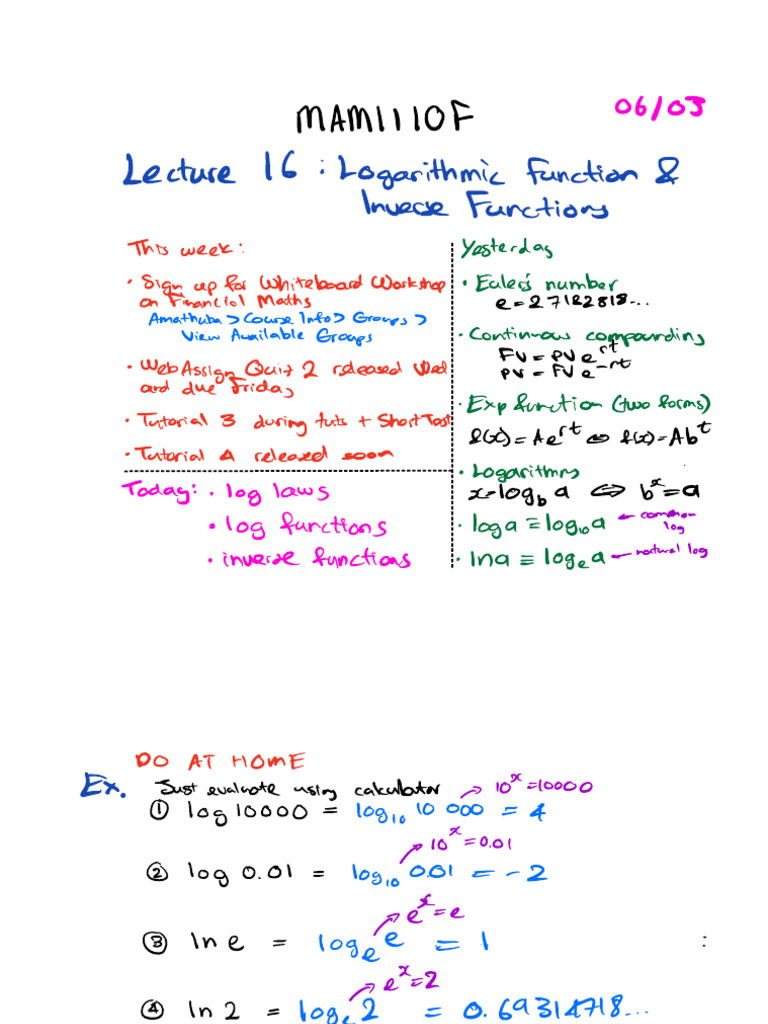 MAM1110F
06/03
Lecture 16 : Logarithmic Function &
Inverse Functions
This week:
• Sign up for Whiteboard Workshop
on Financial Maths
Amathuba > Course Info > Groups >
View Available Groups
• WebAssign Quiz 2 released Wed
and due Friday
• Tutorial 3 during tuts + Short Test
• Tutorial 4 released soon
Yesterday
• Euler's number
e = 2.7182818...
• Continuous compounding
FV = PV e^rt
PV = FV e^-rt
• Exp function (two forms)
f(x) = Ae^rt ⇔ f(x) = Ab^t
• Logarithms
x = log_b a ⇔ b^x = a
• log a ≡ log_10 a ← common log
• ln a ≡ log_e a ← natural log
Today: • log laws
• log functions
• inverse functions
DO AT HOME
Ex. Just evaluate using calculator
① log 10000 = log_10 10 000 = 4 → 10^x = 10000
② log 0.01 = log_10 0.01 = -2 → 10^x = 0.01
③ ln e = log_e e = 1 → e^x = e
④ ln 2 = log_e 2 = 0.69314718... → e^x = 2